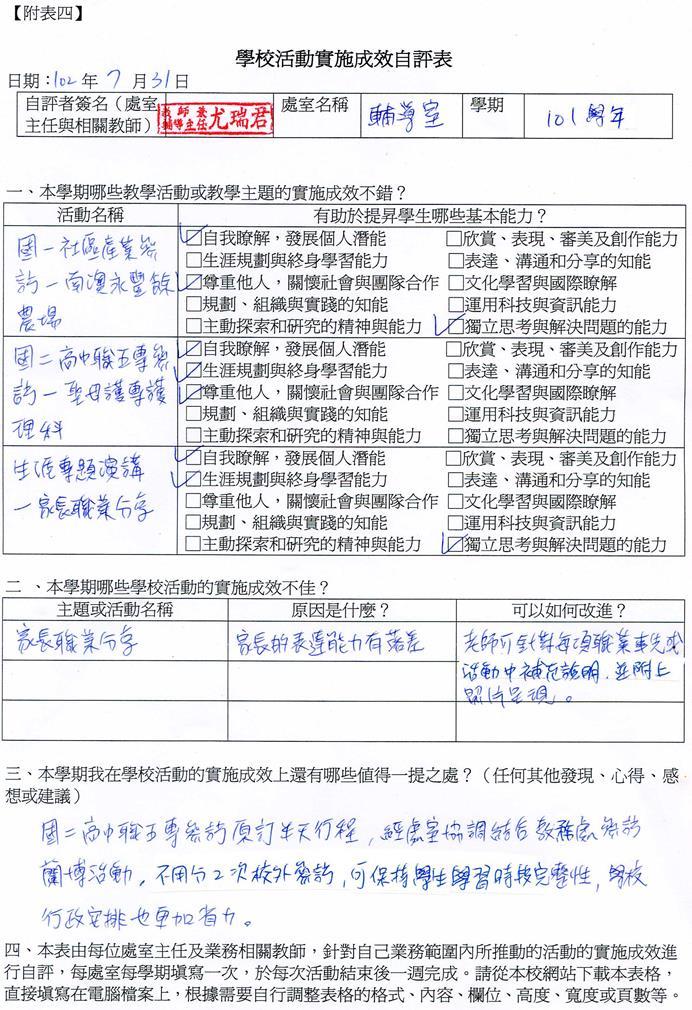 【附表四】
學校活動實施成效自評表
日期：102 年 7 月 31 日
自評者簽名（處室主任與相關教師） 教師兼輔導主任 尤瑞君 處室名稱 輔導室 學期 101學年
一、本學期哪些教學活動或教學主題的實施成效不錯？
活動名稱 有助於提昇學生哪些基本能力？
國一社區產業參訪－南澳永豐餘農場
☑自我瞭解，發展個人潛能 □欣賞、表現、審美及創作能力
□生涯規劃與終身學習能力 □表達、溝通和分享的知能
☑尊重他人，關懷社會與團隊合作 □文化學習與國際瞭解
□規劃、組織與實踐的知能 □運用科技與資訊能力
□主動探索和研究的精神與能力 ☑獨立思考與解決問題的能力
國二高中職五專參訪－聖母護專護理科
☑自我瞭解，發展個人潛能 □欣賞、表現、審美及創作能力
☑生涯規劃與終身學習能力 □表達、溝通和分享的知能
☑尊重他人，關懷社會與團隊合作 □文化學習與國際瞭解
□規劃、組織與實踐的知能 □運用科技與資訊能力
□主動探索和研究的精神與能力 □獨立思考與解決問題的能力
生涯專題演講－家長職業分享
☑自我瞭解，發展個人潛能 □欣賞、表現、審美及創作能力
☑生涯規劃與終身學習能力 □表達、溝通和分享的知能
□尊重他人，關懷社會與團隊合作 □文化學習與國際瞭解
□規劃、組織與實踐的知能 □運用科技與資訊能力
□主動探索和研究的精神與能力 ☑獨立思考與解決問題的能力
二 、本學期哪些學校活動的實施成效不佳？
主題或活動名稱 原因是什麼？ 可以如何改進？
家長職業分享 家長的表達能力有落差 老師可針對每項職業事先或
活動中補充說明，並附上
照片呈現。
三、本學期我在學校活動的實施成效上還有哪些值得一提之處？（任何其他發現、心得、感
想或建議）
國二高中職五專參訪原訂半天行程，經處室協調結合教務處參訪
蘭博活動，不用分2次校外參訪，可保持學生學習時段完整性，學校
行政安排也更加省力。
四、本表由每位處室主任及業務相關教師，針對自己業務範圍內所推動的活動的實施成效進
行自評，每處室每學期填寫一次，於每次活動結束後一週完成。請從本校網站下載本表格，
直接填寫在電腦檔案上，根據需要自行調整表格的格式、內容、欄位、高度、寬度或頁數等。